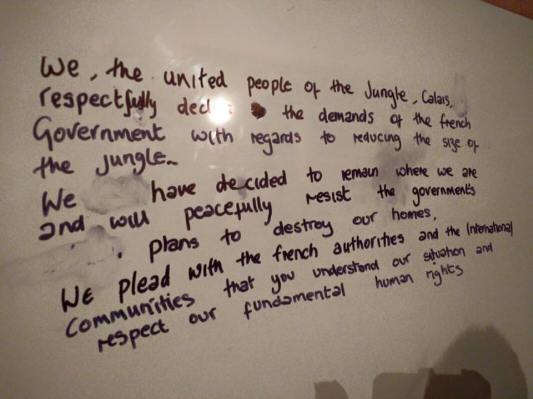 We, the united people of the Jungle, Calais,
respectfully the demands of the french
Government with regards to reducing the size of
the jungle.
We have decided to remain where we are
and will peacefully resist the government's
plans to destroy our homes.
We plead with the french authorities and the International
Communities that you understand our situation and
respect our fundamental human rights